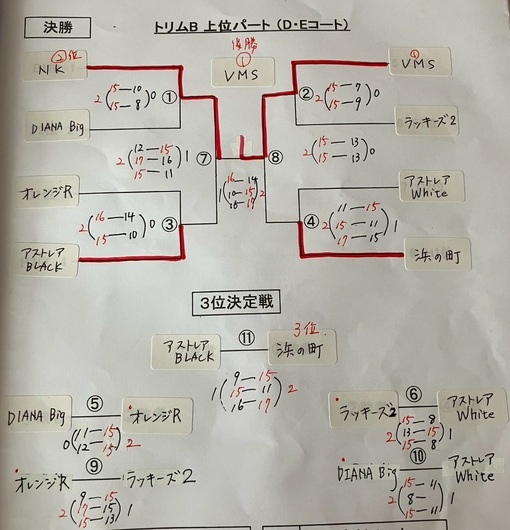 決勝
トリムB 上位パート（D・Eコート）
優勝
②位
NK
①
VMS
①
VMS
2 (15—10 15—8) 0
①
②
2 (15—7 15—9) 0
DIANA Big
ラッキーズ2
2 (12—15 17—16 15—11) 1
⑦
⑧
2 (15—13 15—13) 0
オレンジR
アストレア White
2 (16—14 15—10) 0
③
④
2 (11—15 15—11 17—15) 1
アストレア BLACK
浜の町
3位決定戦
⑪
3位
アストレア BLACK
浜の町
1 (9—15 15—11 16—17) 2
⑤
DIANA Big
オレンジR
0 (11—15 12—15) 2
⑥
ラッキーズ2
アストレア White
2 (15—8 13—15 15—8) 1
⑨
オレンジR
ラッキーズ2
2 (9—15 17—15 15—13) 1
⑩
DIANA Big
アストレア White